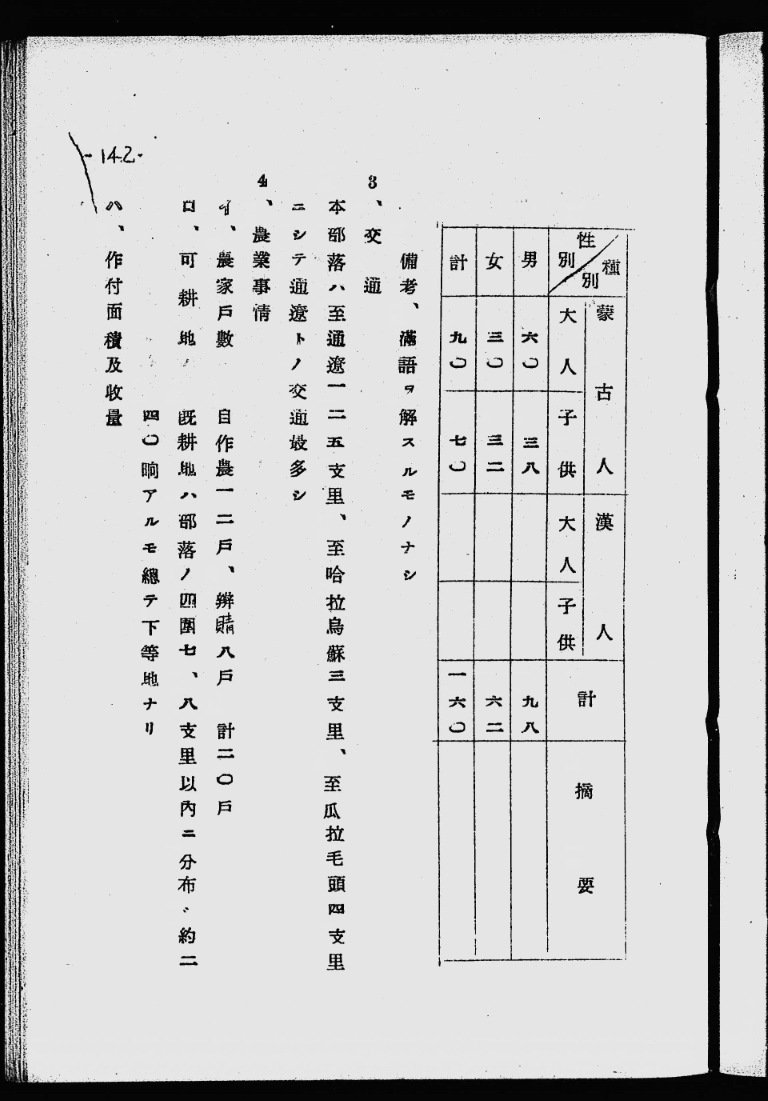 種別 性別 蒙古人 漢人 計 摘要
大人 子供 大人 子供
男 六〇 三八 九八
女 三〇 三二 六二
計 九〇 七〇 一六〇
備考、滿語ヲ解スルモノナシ
3、交通
本部落ハ至通遼一二五支里、至哈拉烏蘇三支里、至瓜拉毛頭四支里
ニシテ通遼トノ交通最多シ
4、農業事情
イ、農家戶數 自作農一二戶、辧睛八戶 計二〇戶
ロ、可耕地 既耕地ハ部落ノ四圍七、八支里以內ニ分布、約二
四〇晌アルモ總テ下等地ナリ
ハ、作付面積及收量
-142-